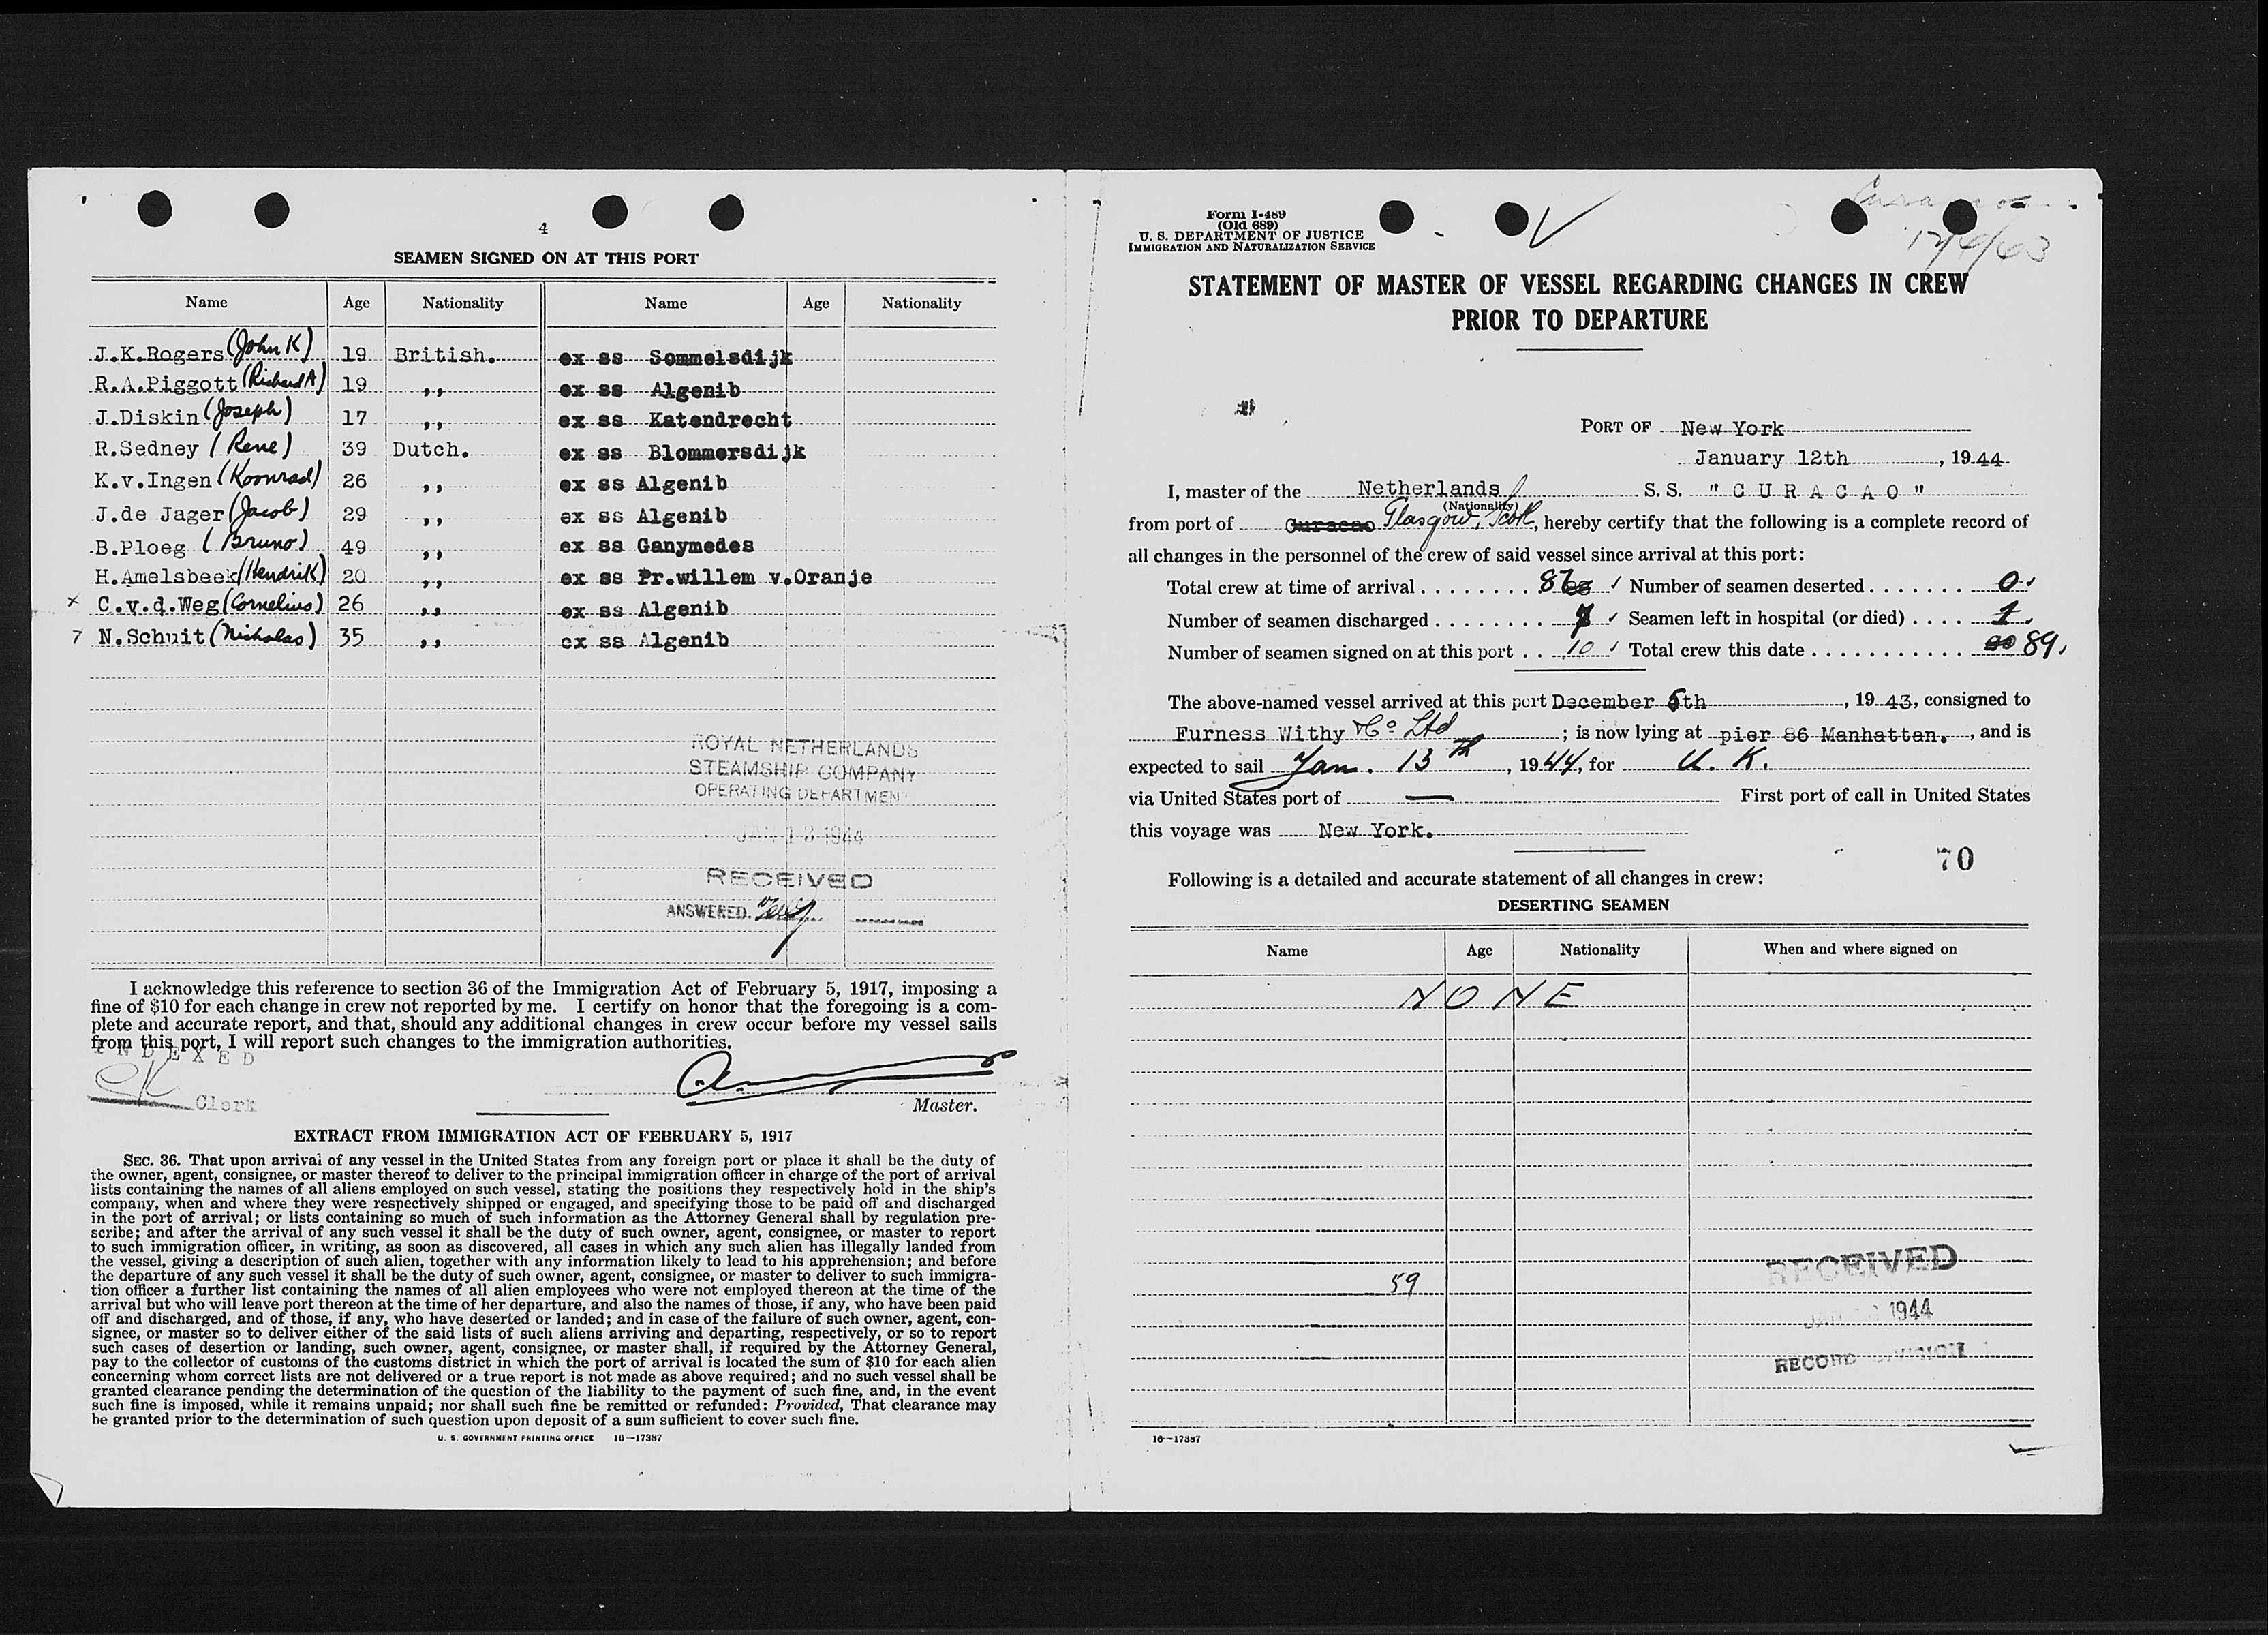 4
SEAMEN SIGNED ON AT THIS PORT
Name Age Nationality Name Age Nationality
J.K.Rogers (John K) 19 British. ex ss Sommelsdijk
R.A.Piggott (Richard A) 19 ,, ex ss Algenib
J.Diskin (Joseph) 17 ,, ex ss Katendrecht
R.Sedney (Rene) 39 Dutch. ex ss Blommersdijk
K.v.Ingen (Koonrad) 26 ,, ex ss Algenib
J.de Jager (Jacob) 29 ,, ex ss Algenib
B.Ploeg (Bruno) 49 ,, ex ss Ganymedes
H.Amelsbeek (Hendrik) 20 ,, ex ss Pr.willem v.Oranje
x C.v.d.Weg (Cornelius) 26 ,, ex ss Algenib
7 N.Schuit (Nicholas) 35 ,, ex ss Algenib
ROYAL NETHERLANDS
STEAMSHIP COMPANY
OPERATING DEPARTMENT
JAN 13 1944
RECEIVED
ANSWERED.
I acknowledge this reference to section 36 of the Immigration Act of February 5, 1917, imposing a
fine of $10 for each change in crew not reported by me. I certify on honor that the foregoing is a com-
plete and accurate report, and that, should any additional changes in crew occur before my vessel sails
from this port, I will report such changes to the immigration authorities.
INDEXED
Clerk
Master.
EXTRACT FROM IMMIGRATION ACT OF FEBRUARY 5, 1917
SEC. 36. That upon arrival of any vessel in the United States from any foreign port or place it shall be the duty of
the owner, agent, consignee, or master thereof to deliver to the principal immigration officer in charge of the port of arrival
lists containing the names of all aliens employed on such vessel, stating the positions they respectively hold in the ship's
company, when and where they were respectively shipped or engaged, and specifying those to be paid off and discharged
in the port of arrival; or lists containing so much of such information as the Attorney General shall by regulation pre-
scribe; and after the arrival of any such vessel it shall be the duty of such owner, agent, consignee, or master to report
to such immigration officer, in writing, as soon as discovered, all cases in which any such alien has illegally landed from
the vessel, giving a description of such alien, together with any information likely to lead to his apprehension; and before
the departure of any such vessel it shall be the duty of such owner, agent, consignee, or master to deliver to such immigra-
tion officer a further list containing the names of all alien employees who were not employed thereon at the time of the
arrival but who will leave port thereon at the time of her departure, and also the names of those, if any, who have been paid
off and discharged, and of those, if any, who have deserted or landed; and in case of the failure of such owner, agent, con-
signee, or master so to deliver either of the said lists of such aliens arriving and departing, respectively, or so to report
such cases of desertion or landing, such owner, agent, consignee, or master shall, if required by the Attorney General,
pay to the collector of customs of the customs district in which the port of arrival is located the sum of $10 for each alien
concerning whom correct lists are not delivered or a true report is not made as above required; and no such vessel shall be
granted clearance pending the determination of the question of the liability to the payment of such fine, and, in the event
such fine is imposed, while it remains unpaid; nor shall such fine be remitted or refunded: Provided, That clearance may
be granted prior to the determination of such question upon deposit of a sum sufficient to cover such fine.
U. S. GOVERNMENT PRINTING OFFICE 16—17387
Form I-489
(Old 689)
U. S. DEPARTMENT OF JUSTICE
IMMIGRATION AND NATURALIZATION SERVICE
STATEMENT OF MASTER OF VESSEL REGARDING CHANGES IN CREW
PRIOR TO DEPARTURE
PORT OF New York
January 12th, 1944
I, master of the Netherlands S. S. "CURACAO"
(Nationality)
from port of Curacao Glasgow, Scot, hereby certify that the following is a complete record of
all changes in the personnel of the crew of said vessel since arrival at this port:
Total crew at time of arrival ........ 87 Number of seamen deserted ....... 0
Number of seamen discharged ........ 7 Seamen left in hospital (or died) .... 1
Number of seamen signed on at this port .. 10 Total crew this date ........... 89
The above-named vessel arrived at this port December 6th, 1943, consigned to
Furness Withy & Co Ltd; is now lying at pier 86 Manhattan., and is
expected to sail Jan. 13th, 1944, for U. K.
via United States port of — First port of call in United States
this voyage was New York.
70
Following is a detailed and accurate statement of all changes in crew:
DESERTING SEAMEN
Name Age Nationality When and where signed on
NONE
59
RECEIVED
1944
RECORD DIVISION
16—17387